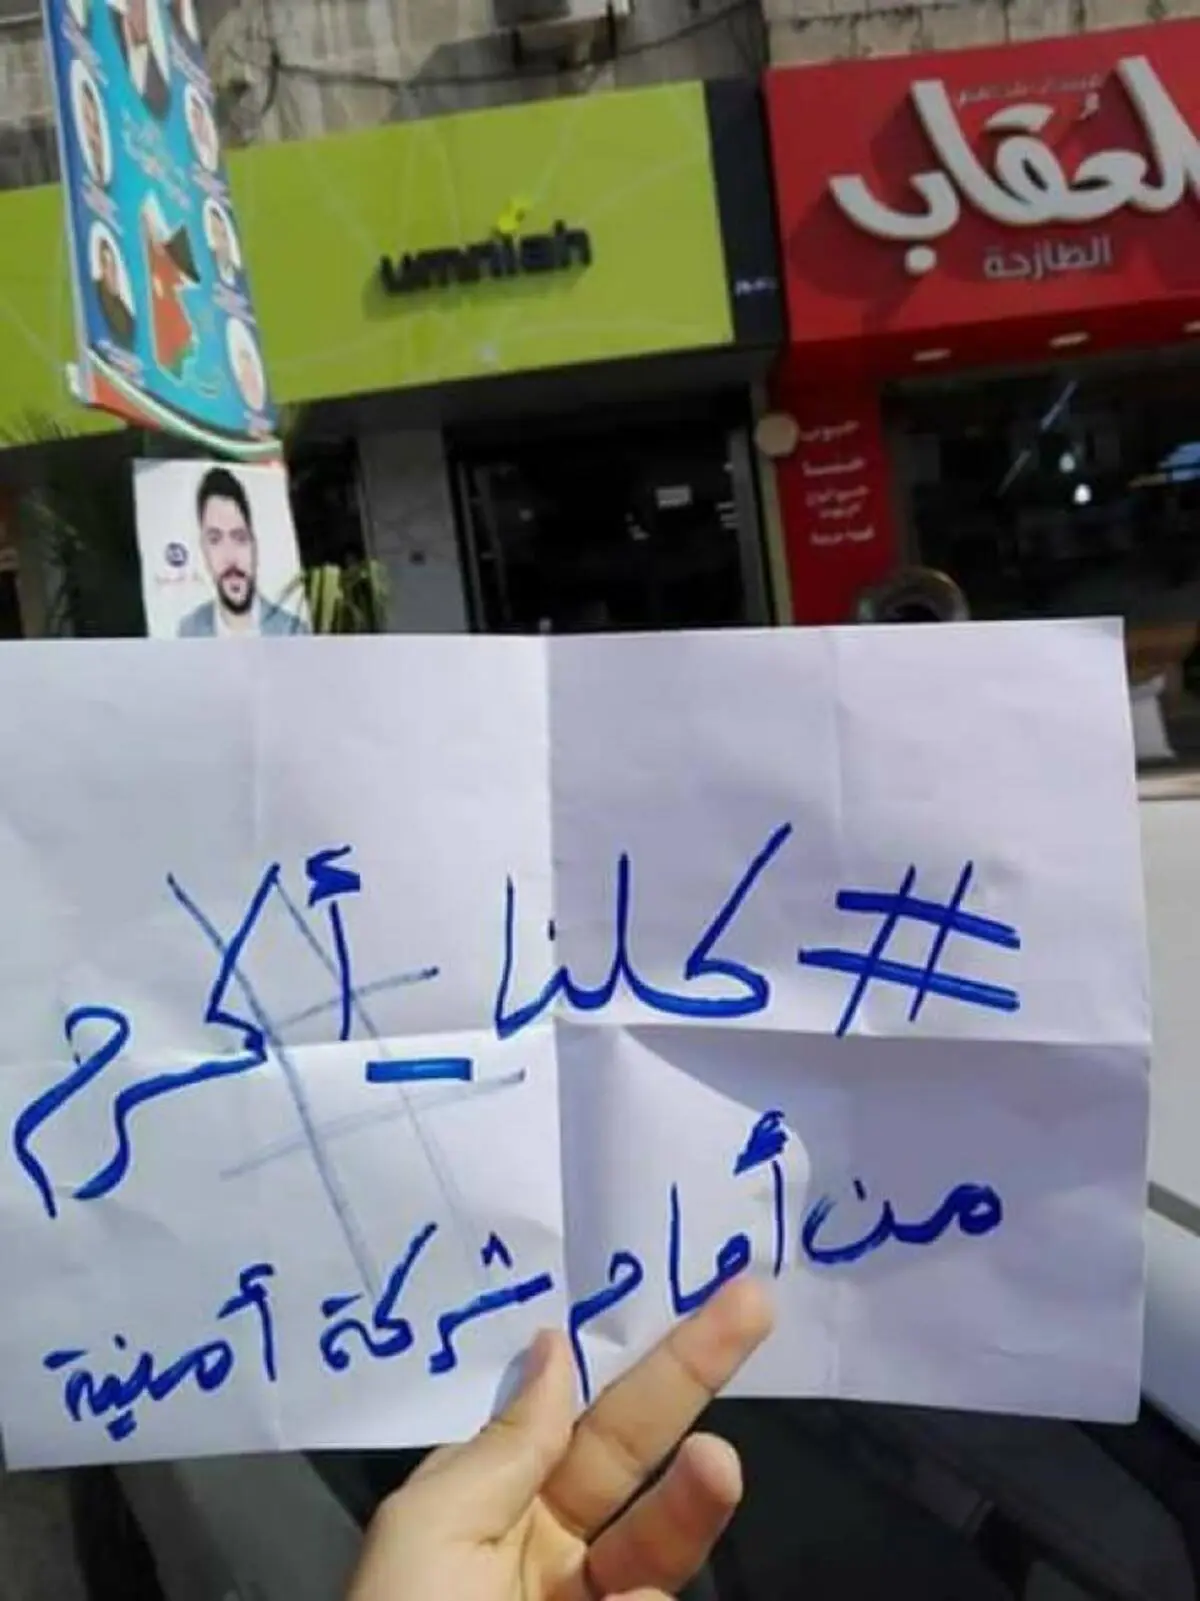 umniah
العقاب
الطازجة
#كلنا_أكرم
من أمام شركة أمنية